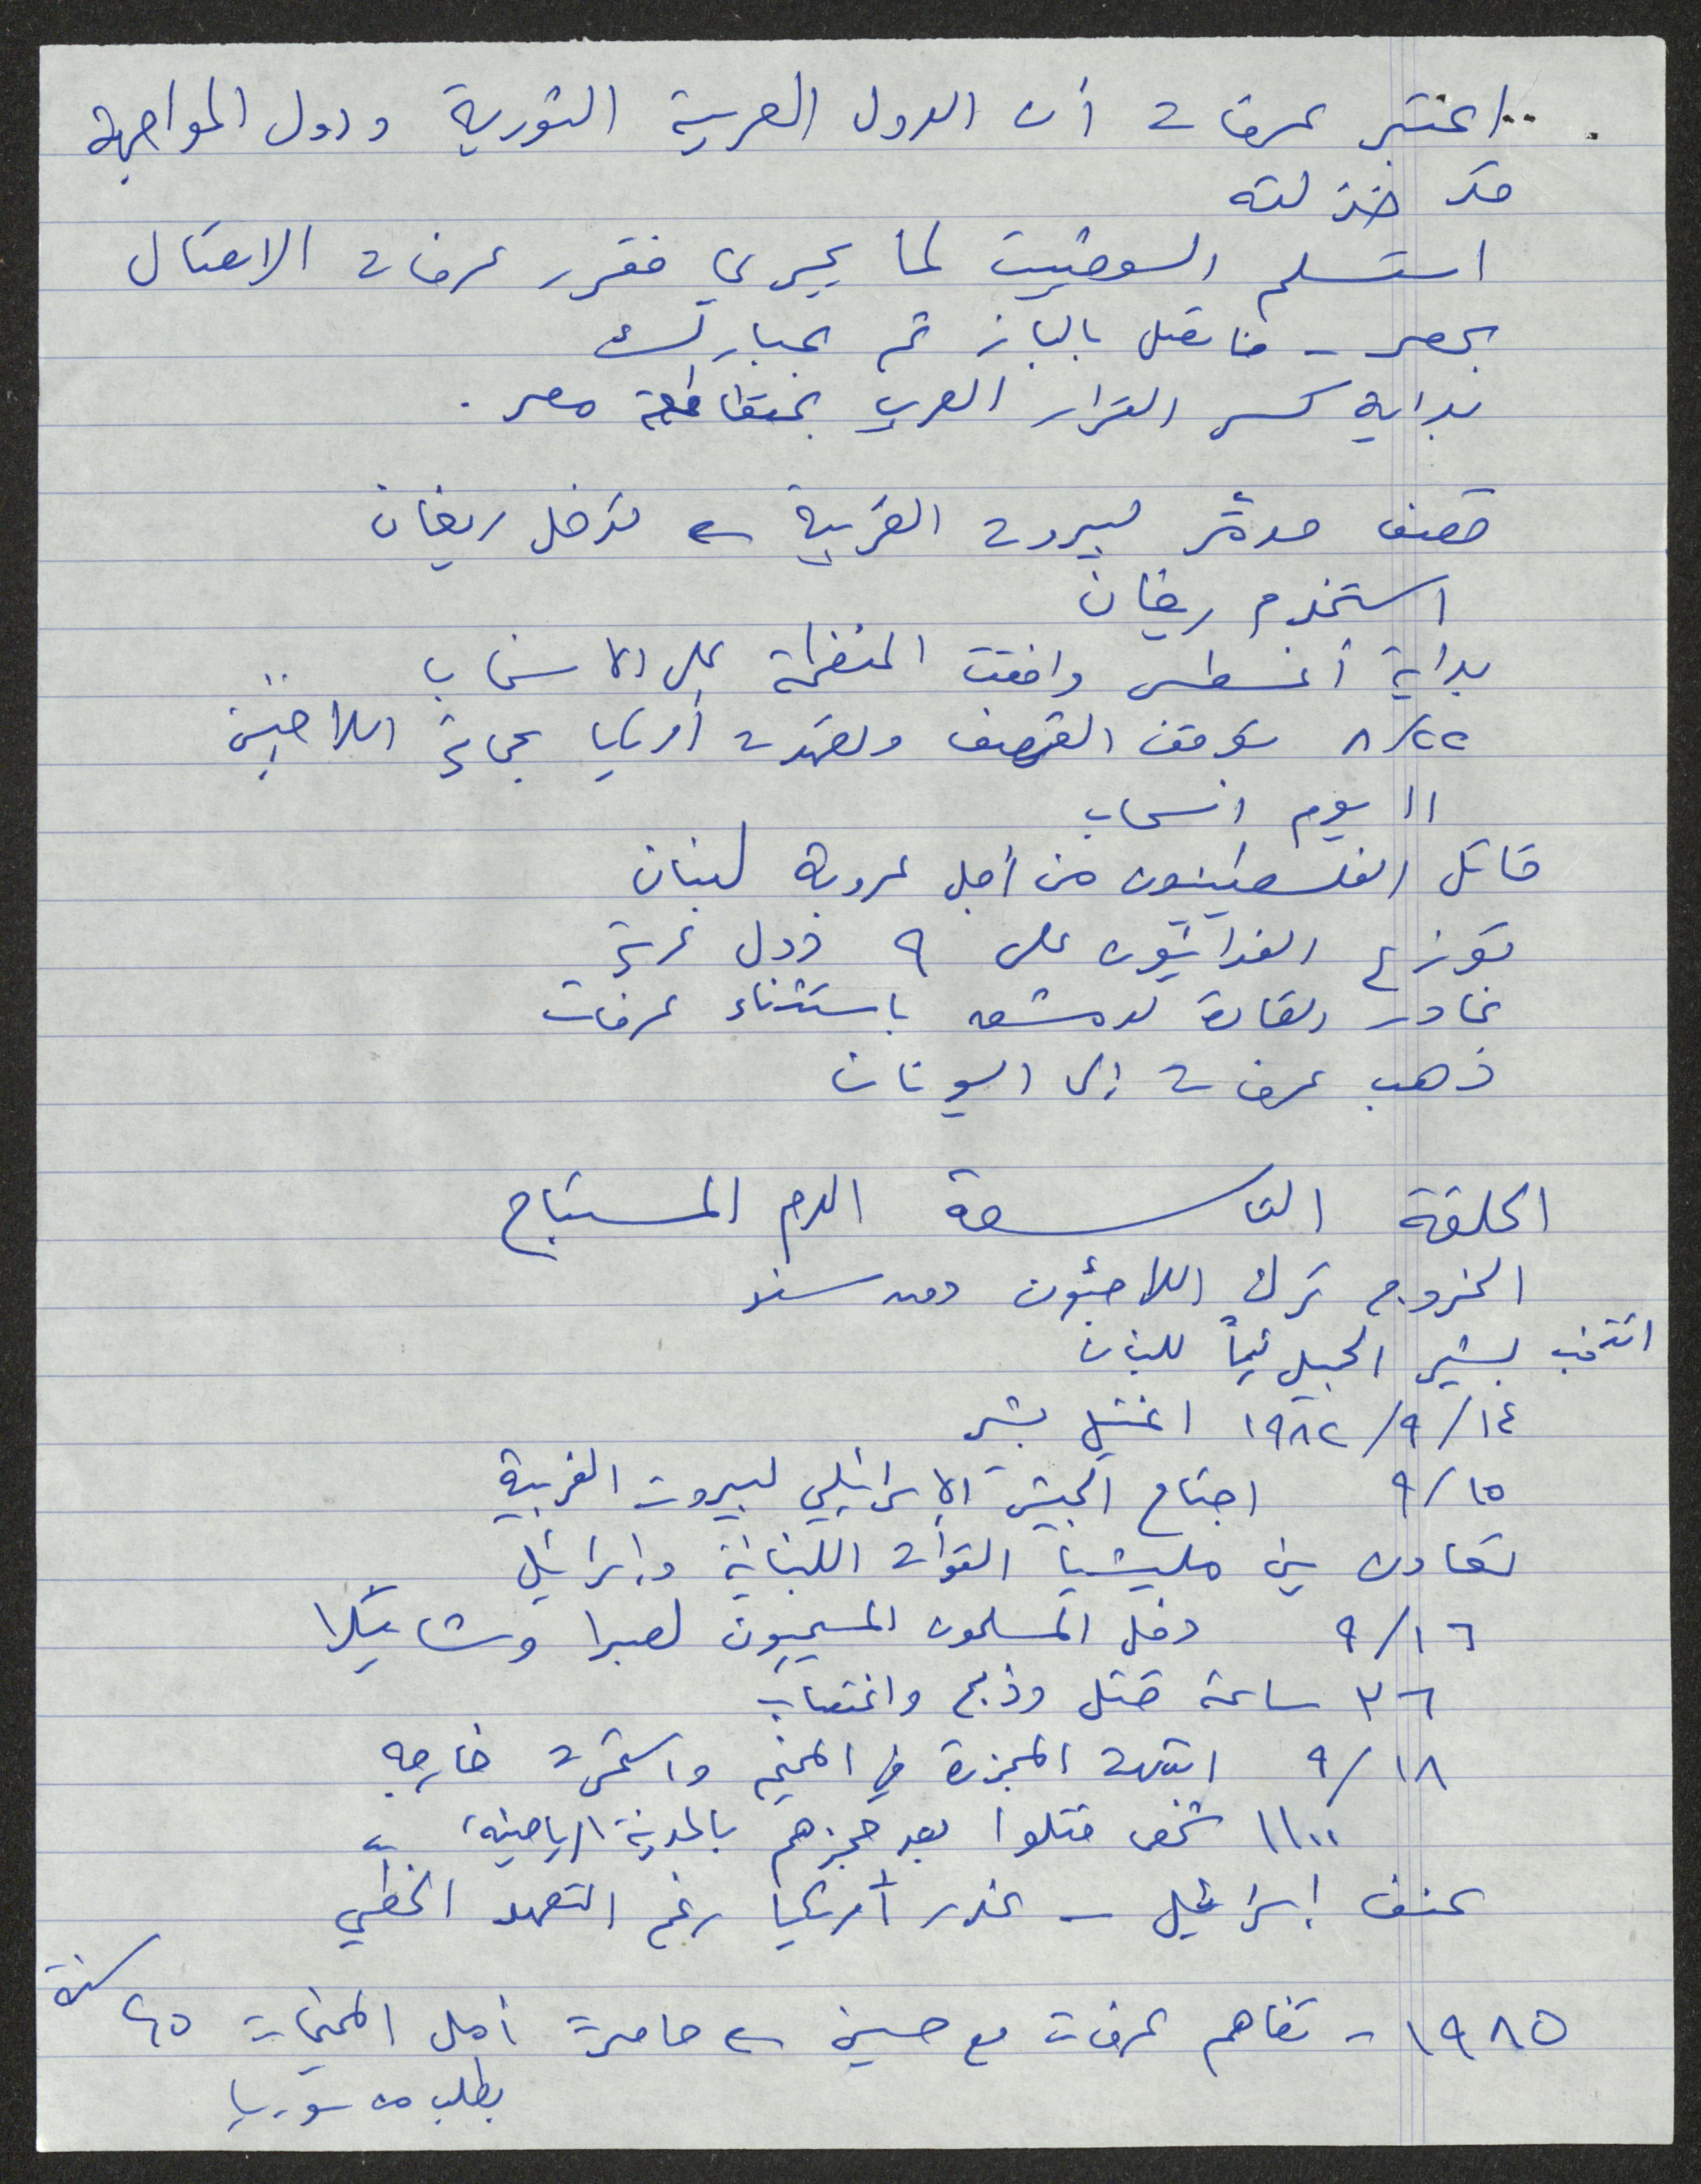 ..اعتبر عرفات أن الدول العربية الثورية ودول المواجهة
قد خذلته
استسلم السوفييت لما يجري فقرر عرفات الاتصال
بمصر - فاتصل بالباز ثم بمبارك
بداية كسر القرار العربي بمقاطعة مصر .
قصف مدمّر لبيروت الغربية ← تدخل ريغان
استخدم ريغان
بداية أغسطس وافقت المنظمة على الانسحاب
٨/٢٢ توقف القصف وتعهدت أمريكا بحماية اللاجئين
١١ يوم انسحاب
قاتل الفلسطينيون من أجل عروبة لبنان
توزع الفدائيون على ٩ دول عربية
غادر القادة لدمشق باستثناء عرفات
ذهب عرفات إلى اليونان
الحلقة التاسعة الدم المستباح
الخروج ترك اللاجئون دون سند
انتخب بشير الجميل رئيساً للبنان
١٩٨٢/٩/١٤ اغتيل بشير
٩/١٥ اجتاح الجيش الإسرائيلي لبيروت الغربية
تعاون بين مليشيا القوات اللبنانية وإسرائيل
٩/١٦ دخل المسلحون المسيحيون لصبرا وشاتيلا
٣٦ ساعة قتل وذبح واغتصاب
٩/١٨ انتهت المجزرة في المخيم واستمرت خارجه
١١٠٠ شخص قتلوا بعد حجزهم بالمدينة الرياضية
عنف إسرائيل - غدر أمريكا رغم التعهد الخطّي
١٩٨٥ - تفاهم عرفات مع حسين ← حاصرت أمل المخيمات ٢٥ سنة
بطلب من سوريا